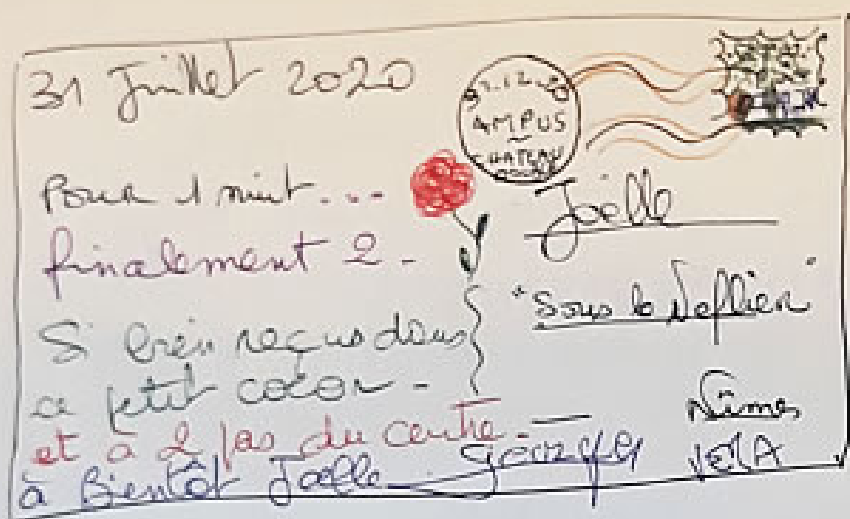 31 Juillet 2020
Pour 1 nuit...
finalement 2 -
Si bien reçus dans
ce petit cocon -
et à 2 pas du centre.
à Bientôt Joëlle
AMPUS
CHATEAU
Joëlle
"Sous le Néflier"
Nîmes